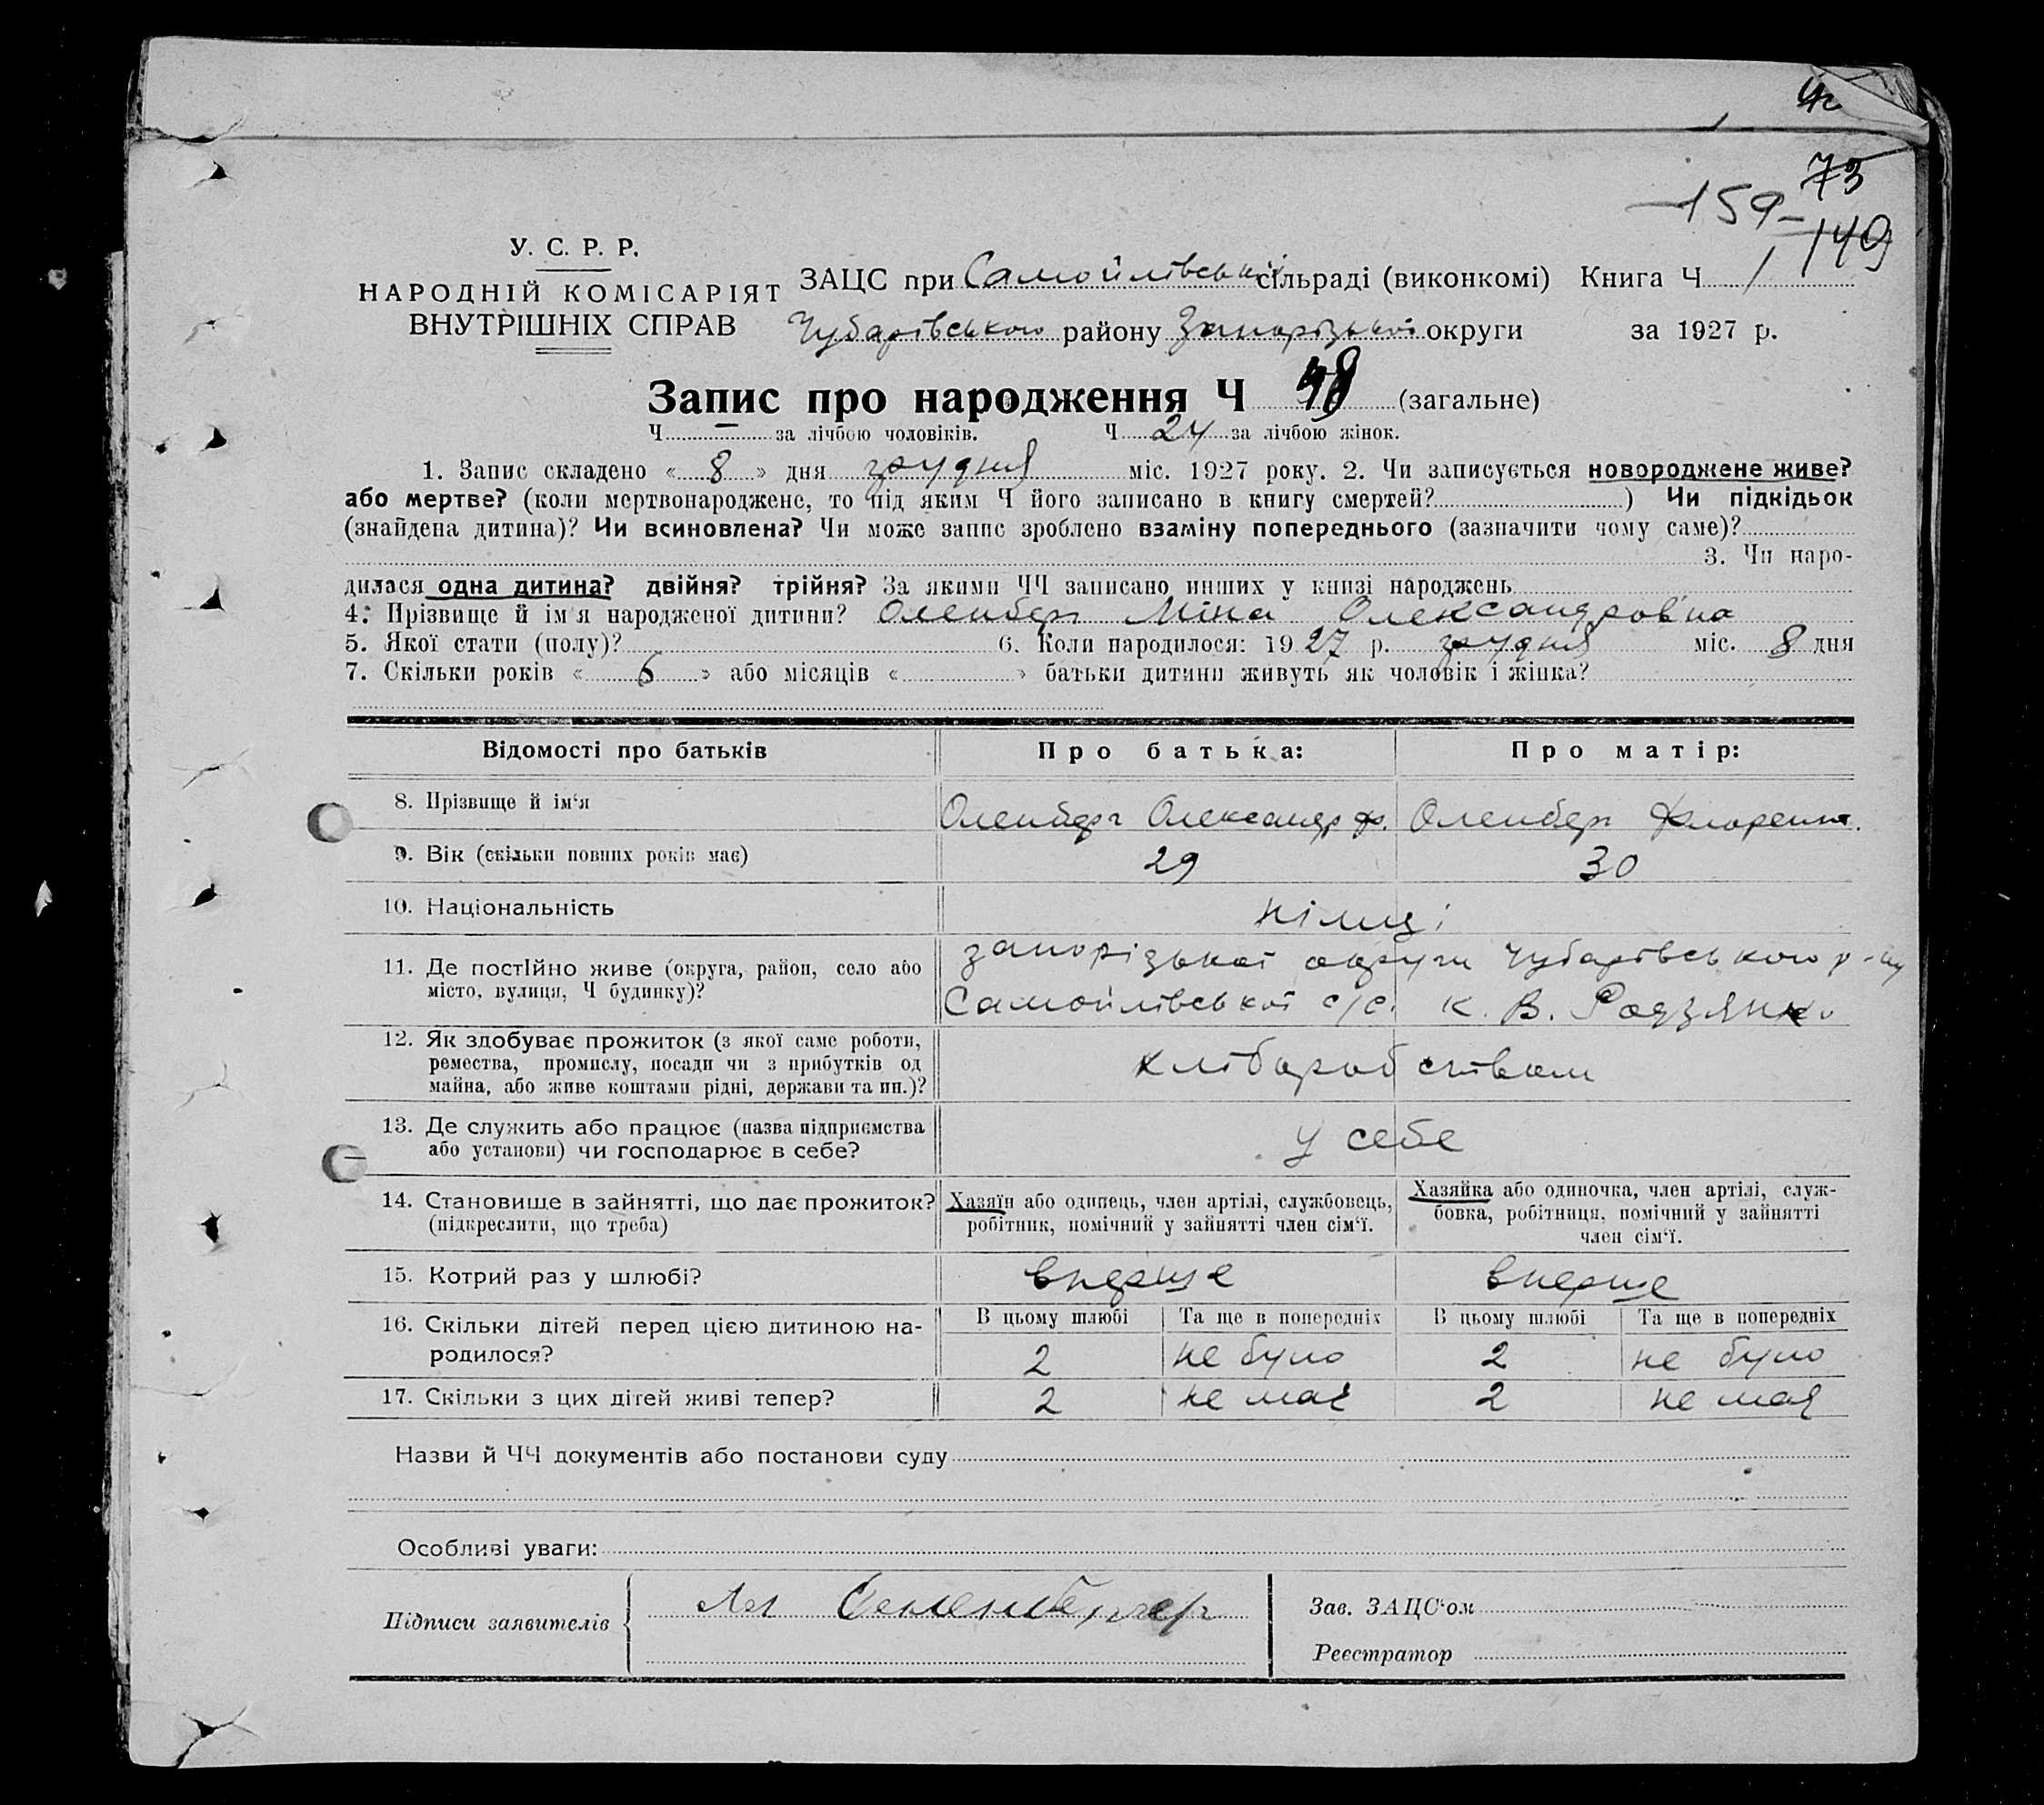 73
159-
149
У. С. Р. Р.
НАРОДНІЙ КОМІСАРІЯТ
ВНУТРІШНІХ СПРАВ
ЗАЦС при Самойлівській сільраді (виконкомі) Книга Ч 1
Чубарівського району Запорізької округи за 1927 р.
Запис про народження Ч 48 (загальне)
Ч — за лічбою чоловіків. Ч 24 за лічбою жінок.
1. Запис складено « 8 » дня грудня міс. 1927 року. 2. Чи записується новороджене живе?
або мертве? (коли мертвонароджене, то під яким Ч його записано в книгу смертей? ) Чи підкідьок
(знайдена дитина)? Чи всиновлена? Чи може запис зроблено взаміну попереднього (зазначити чому саме)?
3. Чи наро-
дилася одна дитина? двійня? трійня? За якими ЧЧ записано инших у книзі народжень
4. Прізвище й ім'я народженої дитини? Оленберг Міна Олександров'на
5. Якої стати (полу)? 6. Коли народилося: 19 27 р. грудня міс. 8 дня
7. Скільки років « 6 » або місяців « » батьки дитини живуть як чоловік і жінка?
Відомості про батьків Про батька: Про матір:
8. Прізвище й ім‘я Оленберг Олександр Ф. Оленберг Флорент.
9. Вік (скільки повних років має) 29 30
10. Національність німці
11. Де постійно живе (округа, район, село або
місто, вулиця, Ч будинку)?
запорізької округи Чубарівського р-ну
Самойлівської с/с. к. В. Родзянко
12. Як здобуває прожиток (з якої саме роботи,
ремества, промислу, посади чи з прибутків од
майна, або живе коштами рідні, держави та ин.)?
хліборобством
13. Де служить або працює (назва підприємства
або установи) чи господарює в себе?
у себе
14. Становище в зайнятті, що дає прожиток?
(підкреслити, що треба)
Хазяїн або одинець, член артілі, службовець,
робітник, помічний у зайнятті член сім‘ї.
Хазяйка або одиночка, член артілі, служ-
бовка, робітниця, помічний у зайнятті
член сім‘ї.
15. Котрий раз у шлюбі? вперше вперше
16. Скільки дітей перед цією дитиною на-
родилося?
В цьому шлюбі Та ще в попередніх В цьому шлюбі Та ще в попередніх
2 не було 2 не було
17. Скільки з цих дітей живі тепер? 2 не має 2 не має
Назви й ЧЧ документів або постанови суду
Особливі уваги:
Підписи заявителів
Зав. ЗАЦС‘ом
Реєстратор